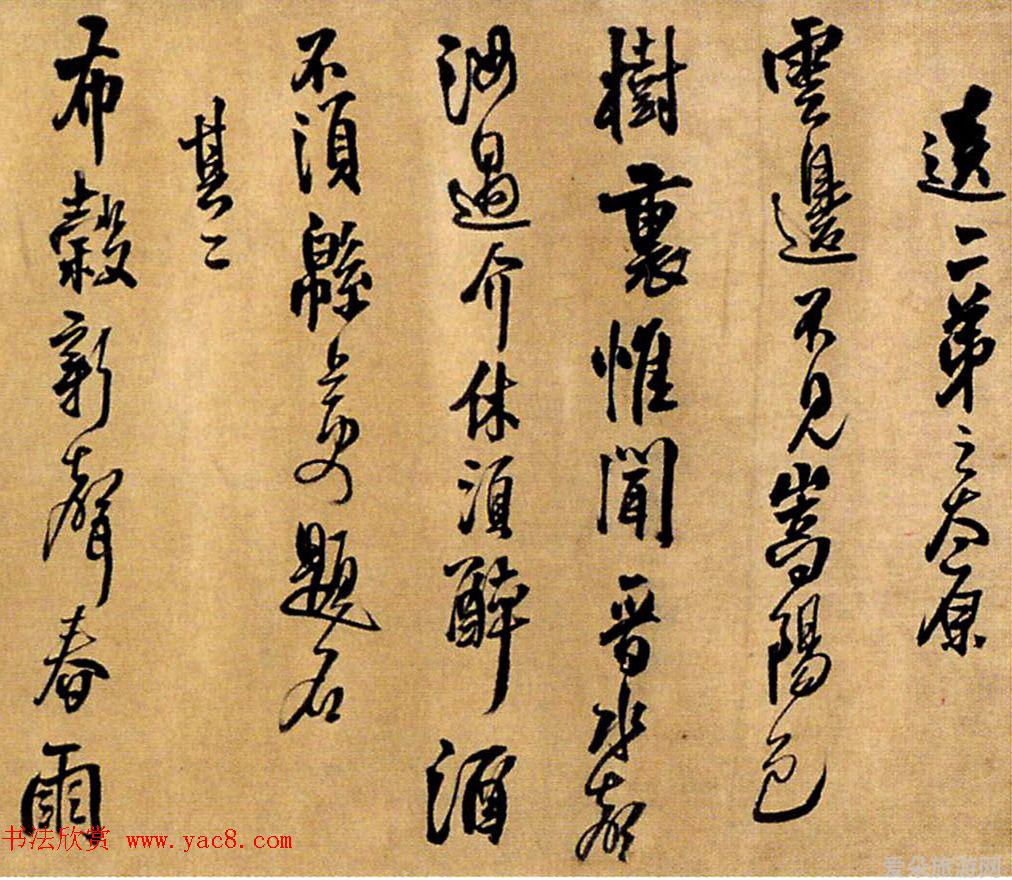 送二弟之太原
雲邊不見嵩陽色
樹裏惟聞晉水聲
汝過介休須醉酒
不須緜上更題名
其二
布穀新聲春雨
书法欣赏 www.yac8.com
爱朵旅游网